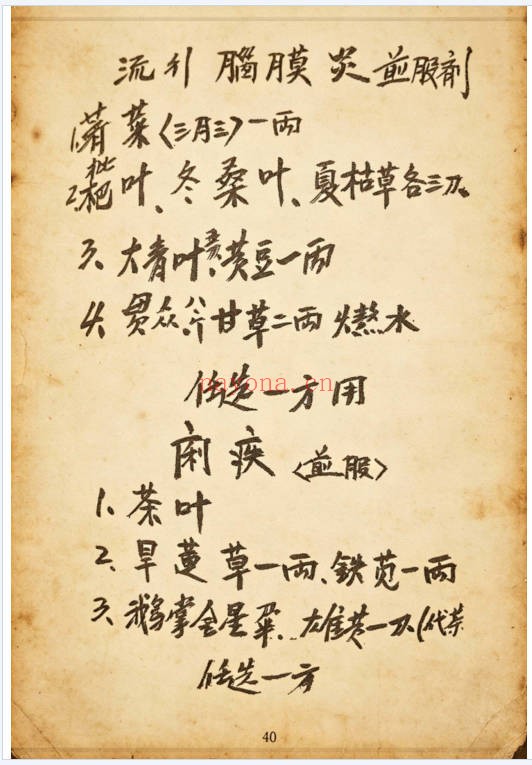 流行腦膜炎煎服剂
1.薺菜〈三月三〉一两
2.枇杷叶、冬桑叶、夏枯草各三刀
3、大青叶、黄豆一两
4、貫众八个甘草二两 水
pakona.cn
任选一方用
痢疾〈煎服〉
1.茶叶
2、旱莲草一两、铁苋一两
3、鹅掌金星草、雄黄一刀(代茶
任选一方
40